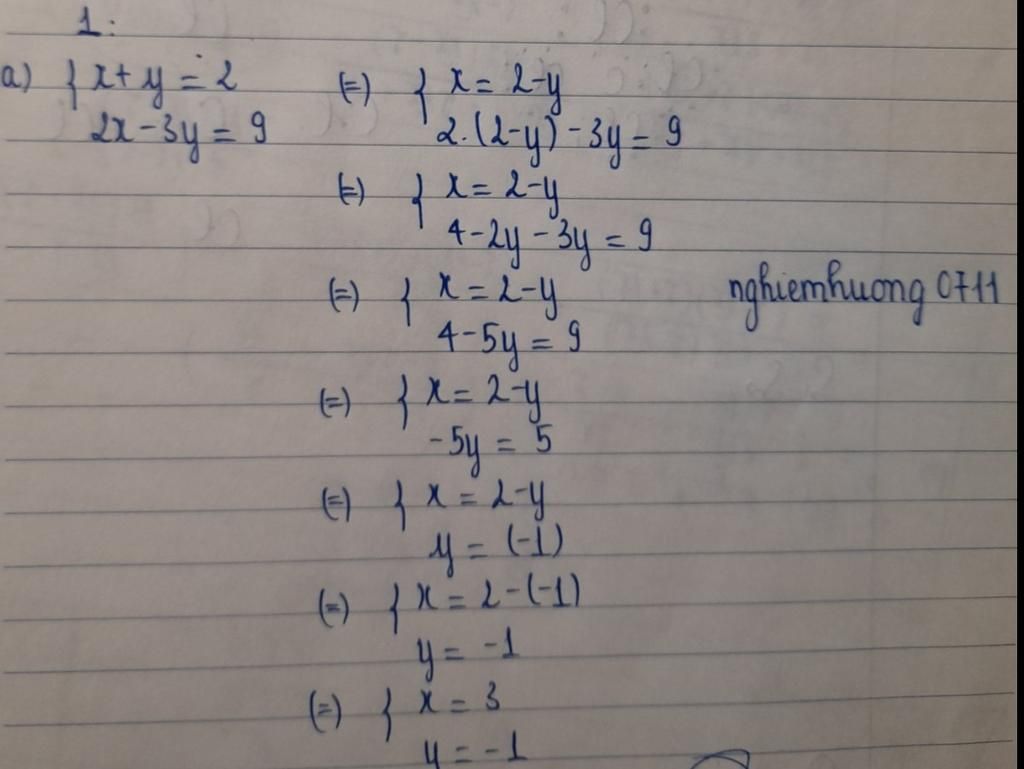 1:
a) { x + y = 2 (=) { x = 2 - y
2x - 3y = 9 2.(2-y) - 3y = 9
(=) { x = 2 - y
4 - 2y - 3y = 9
(=) { x = 2 - y nghiemhuong 0711
4 - 5y = 9
(=) { x = 2 - y
-5y = 5
(=) { x = 2 - y
y = (-1)
(=) { x = 2 - (-1)
y = -1
(=) { x = 3
y = -1